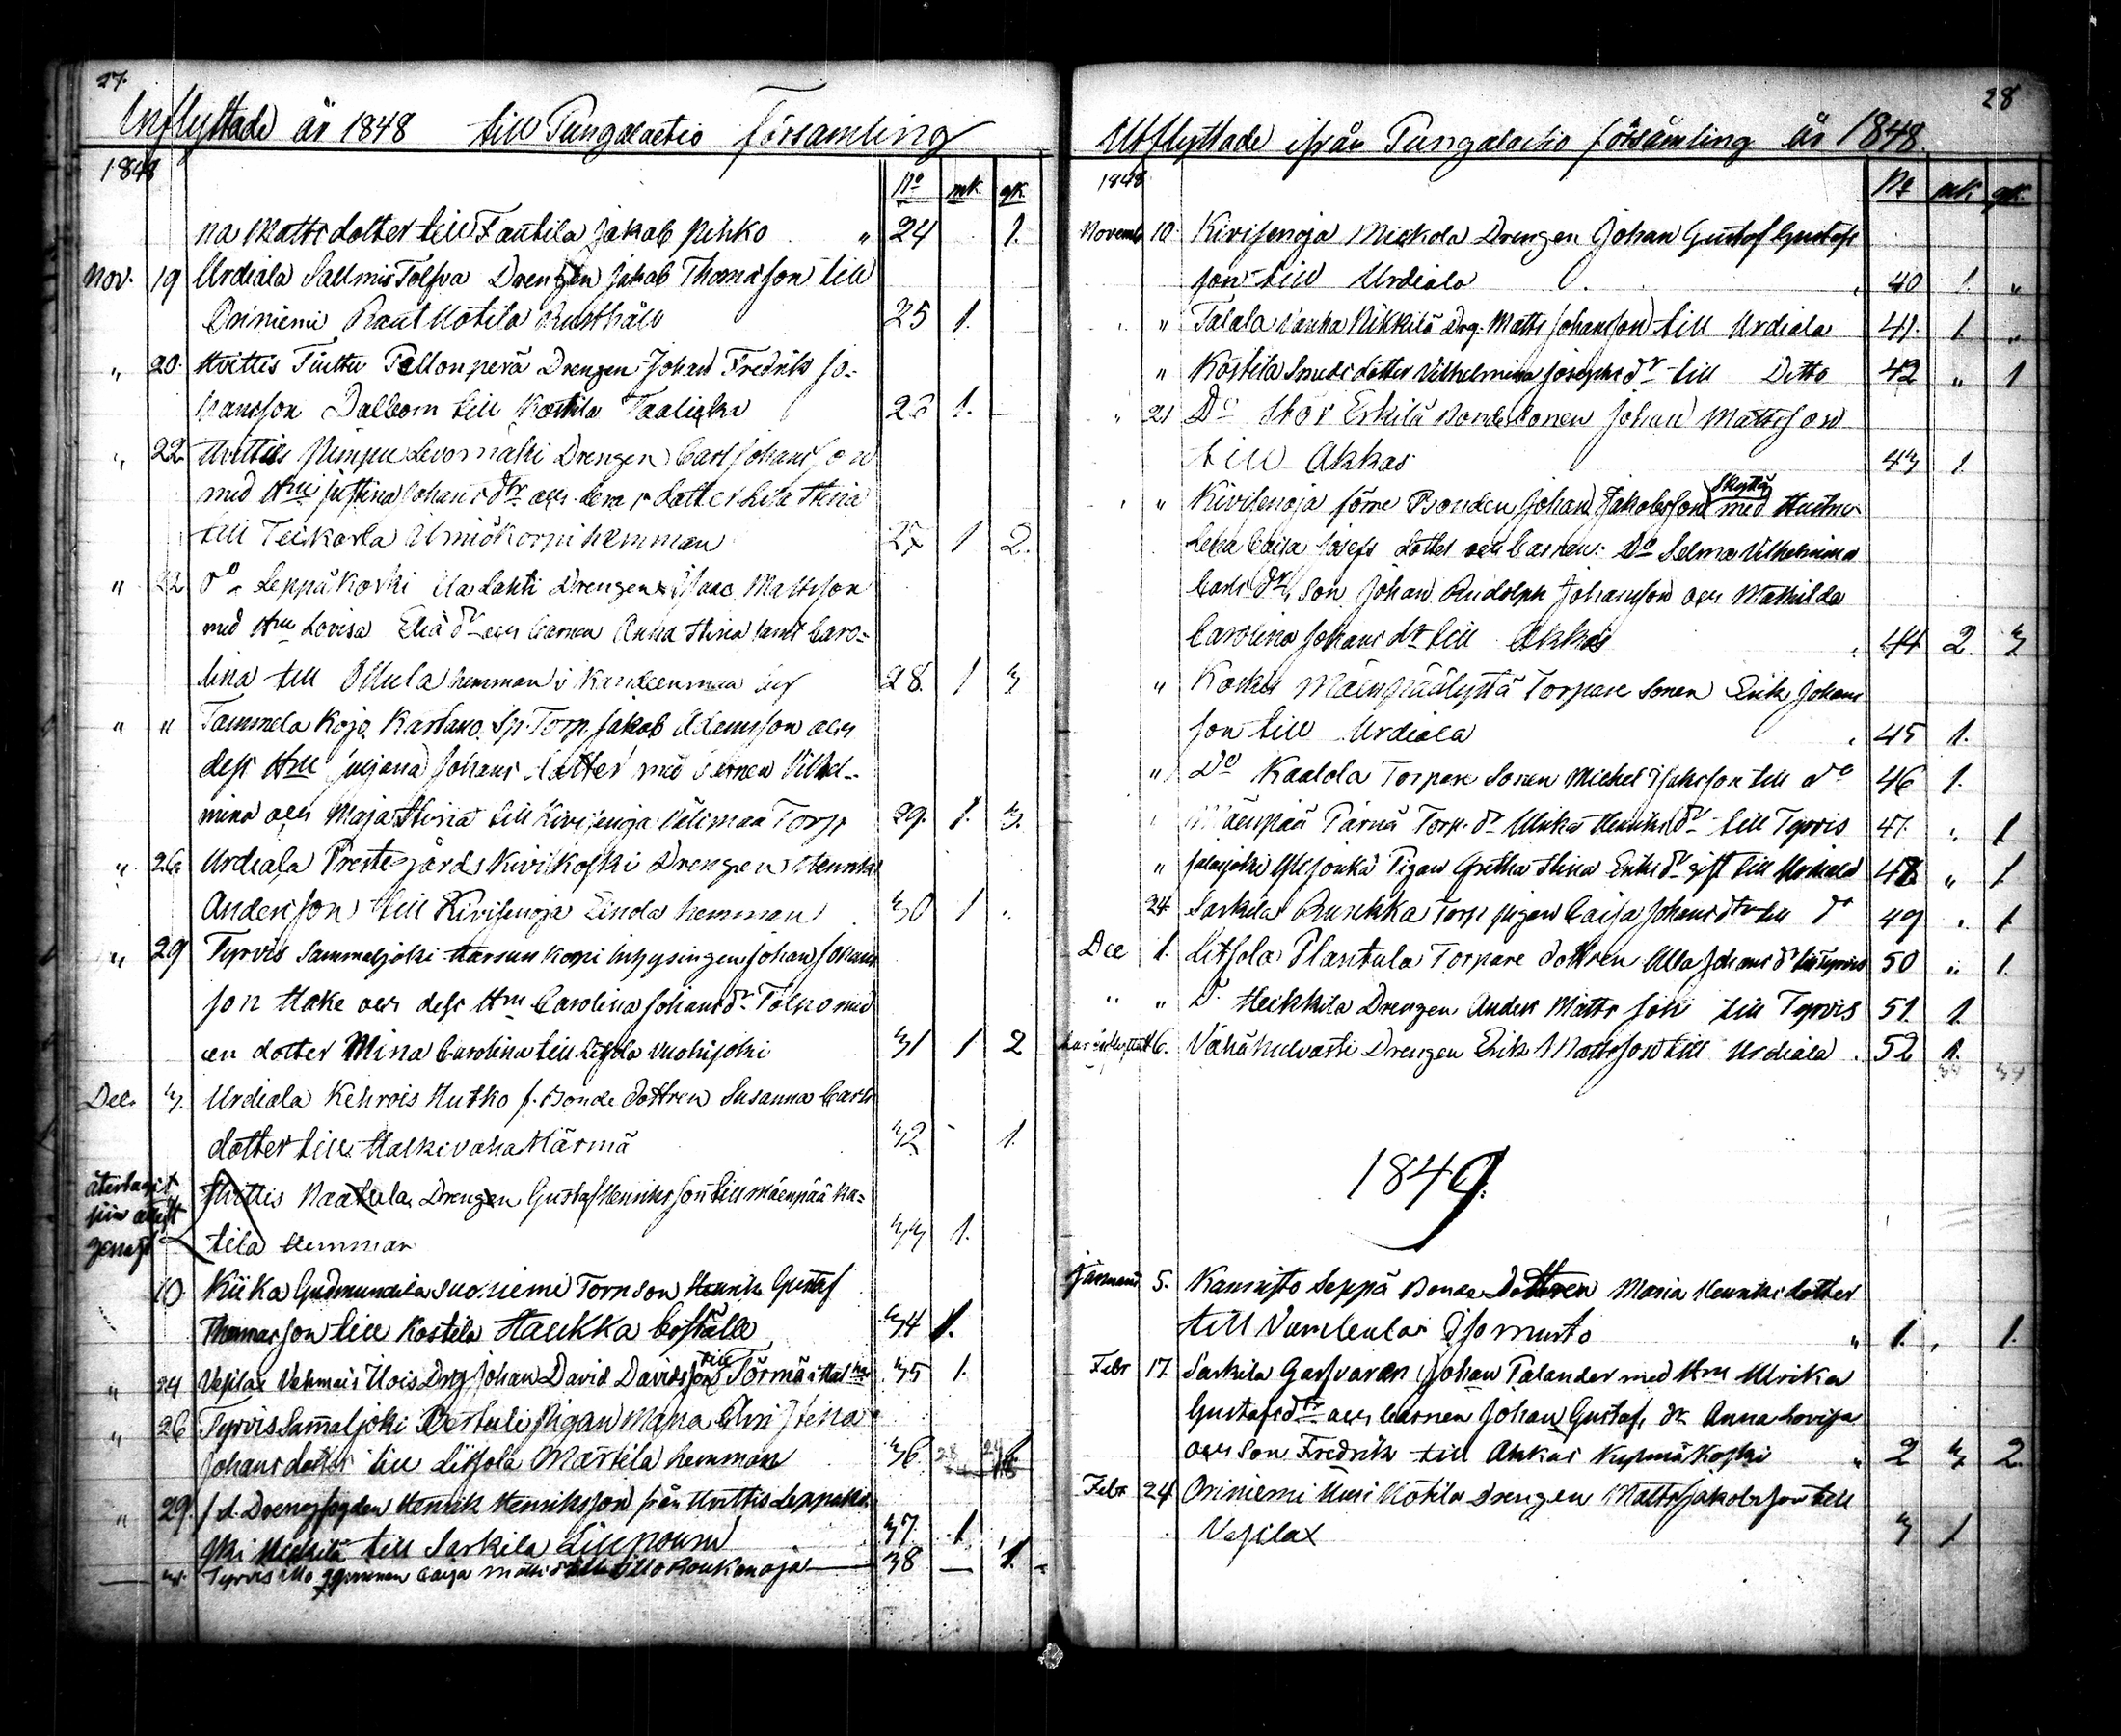 27.
Inflyttade år 1848 till Pungalaitio församling
1848
No mk. qk.
na Matts dotter till Fantila Jakob Pihko " 24 1.
Nov. 19 Urdiala Salmis Tolfva Drengen Jakob Thomasson till
Oriniemi Raut Uotila Rusthåll 25 1.
" 20. Hvittis Pellonperä Drengen Johan Fredrik Jo-
hansson Dalbom till Kostila Taalicki 26 1. —
" 22 Hvittis Levomäki Drengen Carl Johansson
med Hru Justina Johans dr och deras dotter Lisa Stina
till Teikarla Urmiökorpi hemman 27 1 2.
" 22 Do Leppäkoski Ala Lahti Drengen Isaac Mattsson
med Hru Lovisa Eliæ dr och barnen Anna Stina samt Caro-
lina till Ollula hemman i Kanteenmaa by 28. 1 3
" " Tammela Kojo Kartano Sp. Torp. Jakob Adamsson och
dess Hru Juljana Johans dotter med barnen Vilhel-
mina och Maja Stina till Kivisenoja Välimaa Torp 29. 1. 3.
" 26 Urdiala Prestegjårds Kivikoski Drengen Henrik
Andersson till Kivisenoja Einola hemman 30 1 "
" 29 Tyrvis Sammaljoki Karsunkorpi Inhysingen Johan Johans
son Hake och dess Hru Carolina Johans dr med
en dotter Mina Carolina till Litsola Vuohijoki 31 1 2
Dec. 3. Urdiala Kehrois Hutko f. Bonde dottren Susanna Carls
dotter till Halkivaha Härmä 32 1.
återtagit sin attest
Hvittis Naatula Drengen Gustaf Henriksson till Mäenpää Ka-
tila Hemman 33 1.
10 Kiika Gudmundila Suoniemi Torp. Son Henrik Gustaf
Thomasson till Kostila Haukka Boställe 34 1.
" 24 Vesilax Vehmais Uois Drg Johan David Davidsson till Törmä i Hal 35 1.
" 26 Tyrvis Sam̄aljoki Pertuli Pigan Maria Christina
Johans dotter till Litsola Marttila hemman 36
" 29. f.d. Drengfogden Henrik Henriksson från Hvittis Leppäko-
ski till Sarkila Lillnoum 37. 1
Tyrvis Caisa Matts dotter till 38 — 1.

28
Utflyttade ifrån Pungalaitio församling år 1848.
1848
No mk qk.
Novemb 10. Kivisenoja Mickola Drengen Johan Gustaf Gustafs
son till Urdiala 40 1. "
" Talala Vanha Nikkilä Drg. Matts Johansson till Urdiala 41. 1. "
" Kostila Smeds dotter Vilhelmina Josephs dr till Ditto 42 " 1
" 21 Do Stor Erkilä Bonde Sonen Johan Mattsson
till Akkas 43 1.
" Kivisenoja förre Bonden Johan Jakobsson Skyttä med Hustru
Lena Caisa Josefs dotter och barnen: Do Selma Vilhelmina
Carls dr, son Johan Rudolph Johansson och Mathilda
Carolina Johans dr till Akkas 44 2. 3
" Koskis Mäenpäälystä Torpare Sonen Erik Johans
son till Urdiala 45 1.
" Do Kaalola Torpare Sonen Michel Isaksson till do 46 1.
" Mäenpää Pärnä Torp. dr Ulrika Henriks dr till Tyrvis 47. " 1
" Salajoki Yli Jouka Pigan Gretha Stina Eriks dr gift till Urdiala 48 " 1
24 Sarkila Ruskka Torp pigan Caisa Johans dr till do 49 " 1
Dec 1. Litsola Plantula Torpare dottren Ulla Johans dr till Tyrvis 50 " 1.
" " Do Heikkilä Drengen Anders Matts son till Tyrvis 51. 1.
6. Vähähuhvasti Drengen Erik Mattsson till Urdiala 52 1.
1849.
Januari 5. Kannisto Seppä Bonde Dottren Maria Henriks dotter
till Vambula Isomusto " 1. 1.
Febr 17. Sarkila Garfvaren Johan Palander med Hru Ulrika
Gustafs dr och barnen Johan Gustaf, dr Anna Lovisa
och Son Fredrik till Akkas Kylmäkoski " 2 3 2.
Febr 24 Oriniemi Uusi Uotila Drengen Matts Jakobsson till
Vesilax 3 1